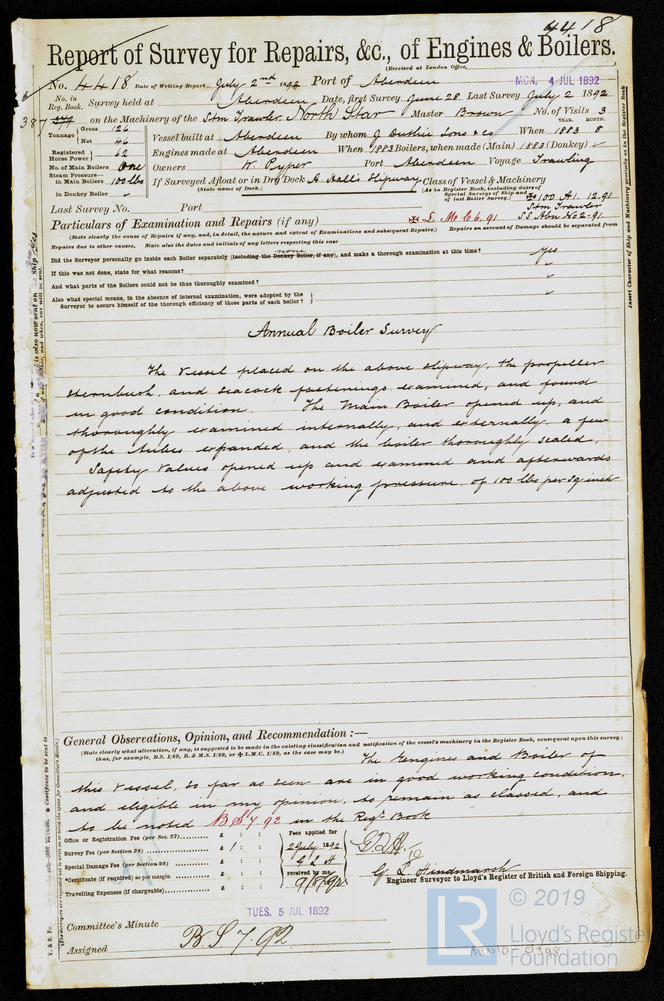 4418
Report of Survey for Repairs, &c., of Engines & Boilers.
(Received at London Office,
No. 4418 Date of Writing Report July 2nd 1892 Port of Aberdeen MON. 4 JUL 1892
No. in Reg. Book. Survey held at Aberdeen Date, first Survey June 28 Last Survey July 2 1892
on the Machinery of the Stm Trawler North Star Master Brown No. of Visits 3
Tonnage Gross 126 Net 46 Vessel built at Aberdeen By whom J Duthie Sons & Co When 1883 YEAR. 8 MONTH.
Registered Horse Power 42 Engines made at Aberdeen When 1883 Boilers, when made (Main) 1883 (Donkey) ✓
No. of Main Boilers One Owners W. Pyper Port Aberdeen Voyage Trawling
Steam Pressure in Main Boilers 100 lbs If Surveyed Afloat or in Dry Dock A Hall's Slipway Class of Vessel & Machinery
(State name of Dock.) (As in Register Book, including dates of Special Surveys of Ship and of last Boiler Survey.) 100 A1. 12.91
in Donkey Boiler ✓ Stm Trawler
Last Survey No. Port S S Abn No2 2.91.
L. M C 6. 91
Particulars of Examination and Repairs (if any)
(State clearly the cause of Repairs if any, and, in detail, the nature and extent of Examinations and subsequent Repairs.) Repairs on account of Damage should be separated from
Repairs due to other causes. State also the dates and initials of any letters respecting this case none
Did the Surveyor personally go inside each Boiler separately (including the Donkey Boiler, if any), and make a thorough examination at this time? Yes
If this was not done, state for what reasons? ✓
And what parts of the Boilers could not be thus thoroughly examined? ✓
Also what special means, in the absence of internal examination, were adopted by the Surveyor to assure himself of the thorough efficiency of those parts of each boiler? ✓
Annual Boiler Survey
The Vessel placed on the above slipway, the propeller
sternbush, and seacock fastenings examined, and found
in good condition. The Main Boiler opened up, and
thoroughly examined internally, and externally, a few
of the tubes expanded, and the boiler thoroughly scaled,
Safety Valves opened up and examined and afterwards
adjusted to the above working pressure of 100 lbs per sq inch
General Observations, Opinion, and Recommendation :—
(State clearly what alteration, if any, is suggested to be made in the existing classification and notification of the vessel's machinery in the Register Book, consequent upon this survey;
thus, for example, B.S. 1/89, B. & M.S. 1/89, or L.M.C. 1/89, as the case may be.)
The Engines and Boiler of
this Vessel, so far as seen are in good working condition,
and eligible in my opinion, to remain as classed, and
to be noted B S 7. 92 in the Regr Book
Office or Registration Fee (per Sec. 27) £ : : Fees applied for
Survey Fee (per Section 28) £ 1 : : 2 July 1892
Special Damage Fee (per Section 28) £ : : G. L. H
*Certificate (if required) as per margin £ : : received by me,
Travelling Expenses (if chargeable) £ : :
G. L. Hindmarsh
Engineer Surveyor to Lloyd's Register of British and Foreign Shipping.
TUES. 5 JUL 1892
Committee's Minute
Assigned B. S 7. 92
Insert Character of Ship and Machinery precisely as in the Register Book
LR © 2019
Lloyd's Register
Foundation